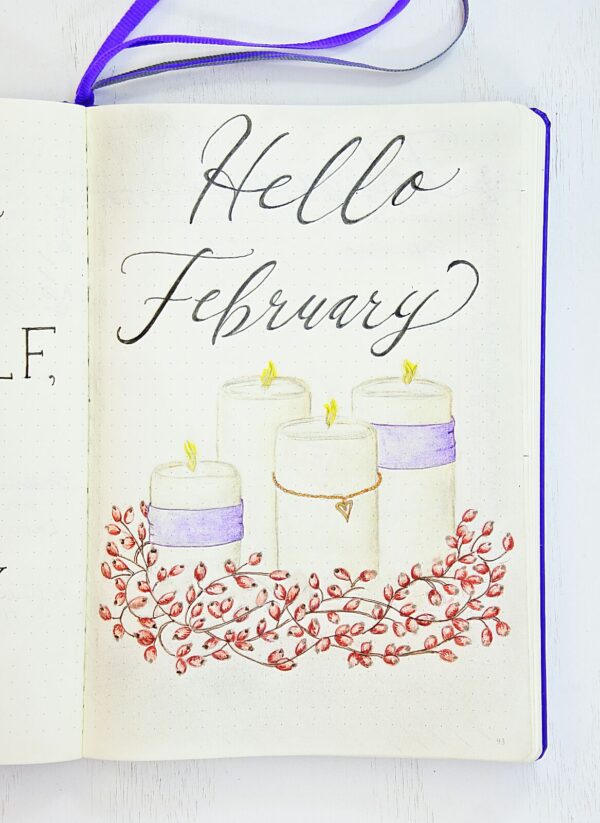 LF,
Hello
February
43